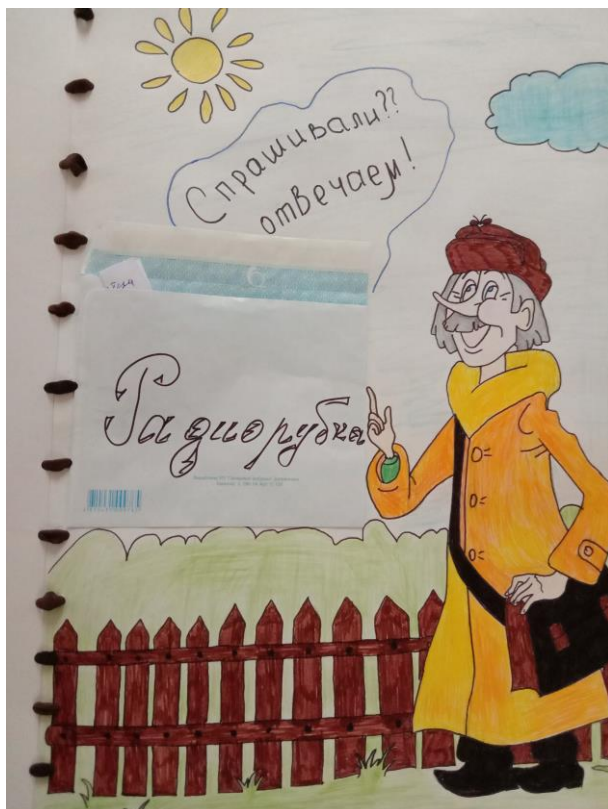 Спрашивали??
отвечаем!
6
Радиорубка